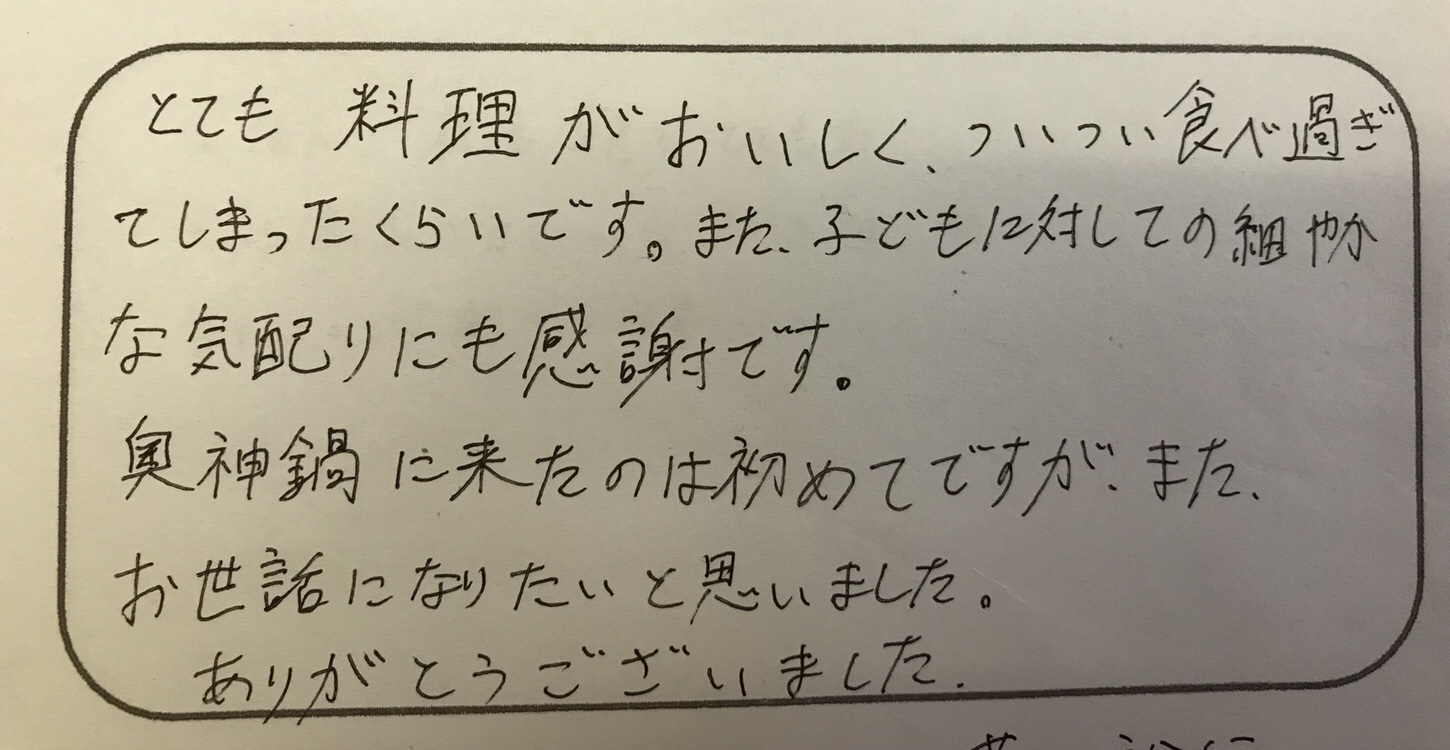 とても 料理がおいしく、ついつい食べ過ぎ
てしまったくらいです。また、子どもに対しての細やか
な気配りにも感謝です。
奥神鍋に来たのは初めてですが、また、
お世話になりたいと思いました。
ありがとうございました.